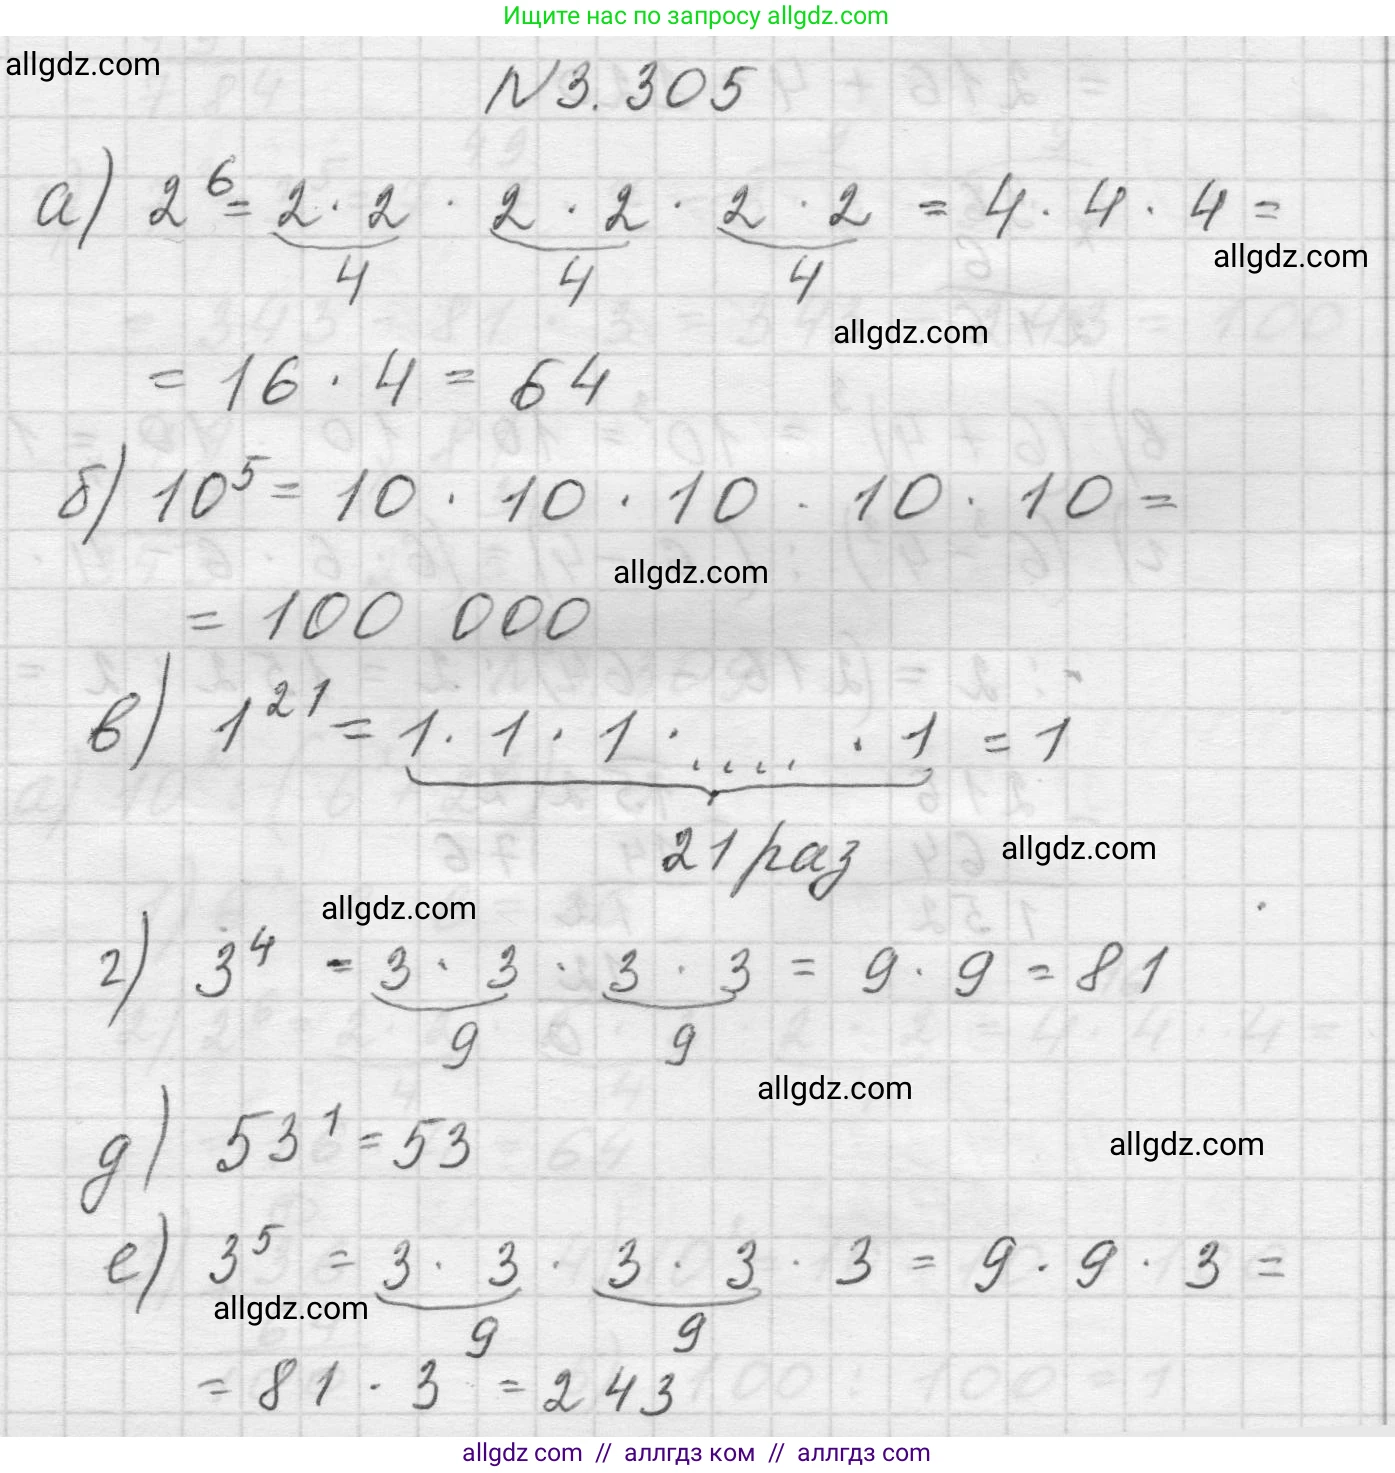 Ищите нас по запросу allgdz.com
allgdz.com
N3.305
а) 2⁶ = 2 · 2 · 2 · 2 · 2 · 2 = 4 · 4 · 4 =
4 4 4
allgdz.com
allgdz.com
= 16 · 4 = 64
б) 10⁵ = 10 · 10 · 10 · 10 · 10 =
allgdz.com
= 100 000
в) 1²¹ = 1 · 1 · 1 · .... · 1 = 1
21 раз
allgdz.com
allgdz.com
г) 3⁴ = 3 · 3 · 3 · 3 = 9 · 9 = 81
9 9
allgdz.com
д) 53¹ = 53
allgdz.com
е) 3⁵ = 3 · 3 · 3 · 3 · 3 = 9 · 9 · 3 =
allgdz.com
9 9
= 81 · 3 = 243
allgdz com // аллгдз ком // аллгдз com